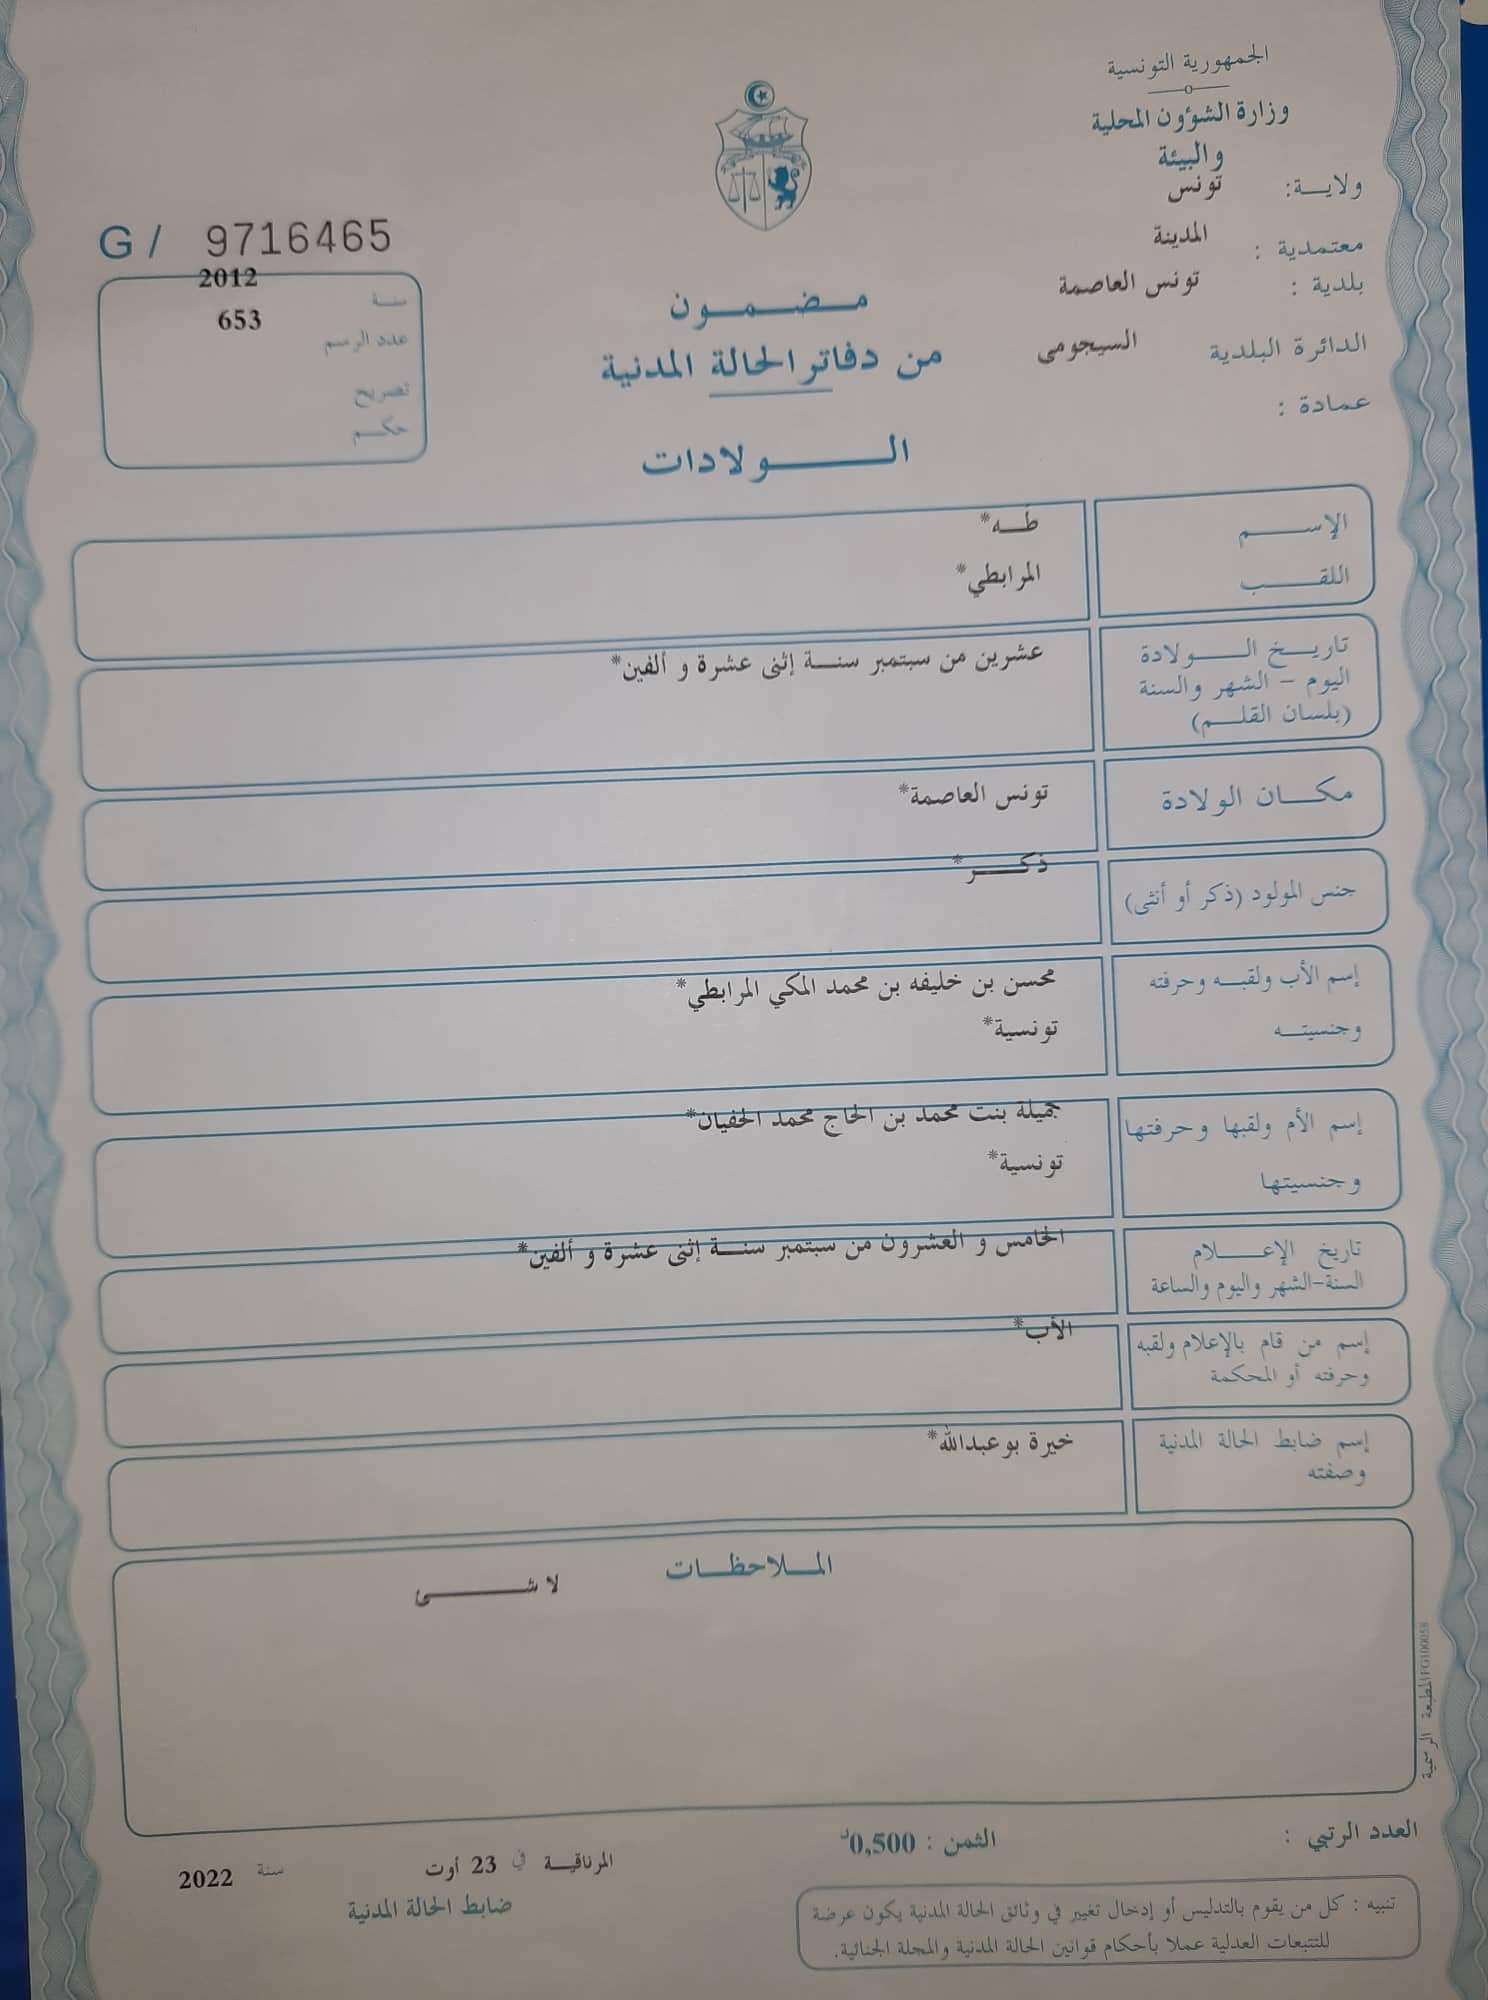 الجمهورية التونسية
وزارة الشؤون المحلية
والبيئة
ولايـــة: تونس
معتمدية : المدينة
بلدية : تونس العاصمة
الدائرة البلدية السيجومي
عمادة :
G / 9716465
سنـة 2012
عدد الرسم 653
تصريح
حكـــم
مـــضـــمـــون
من دفاتر الحالة المدنية
الـــــولادات
الإســـــم طـــه*
اللقـــــب المرابطي*
تاريـــخ الـــــولادة عشرين من سبتمبر سنـــة إثنى عشرة و ألفين*
اليوم – الشهر والسنة
(بلسان القلـــم)
مكـــان الولادة تونس العاصمة*
جنس المولود (ذكر أو أنثى) ذكـــــر*
إسم الأب ولقبـــه وحرفته محسن بن خليفه بن محمد المكي المرابطي*
وجنسيتـــه تونسية*
إسم الأم ولقبها وحرفتها جميلة بنت محمد بن الحاج محمد الخفيان*
وجنسيتها تونسية*
تاريخ الإعـــــلام الخامس و العشرون من سبتمبر سنـــة إثنى عشرة و ألفين*
السنة-الشهر واليوم والساعة
إسم من قام بالإعلام ولقبه الأب*
وحرفته أو المحكمة
إسم ضابط الحالة المدنية خيرة بوعبدالله*
وصفته
المـــلاحظـــات
لا شـــــــئ
المطبعة الرسمية FG100058
العدد الرتبي :
الثمن : 0,500د
المرناقيـــة في 23 أوت سنة 2022
ضابط الحالة المدنية
تنبيه : كل من يقوم بالتدليس أو إدخال تغيير في وثائق الحالة المدنية يكون عرضة
للتتبعات العدلية عملا بأحكام قوانين الحالة المدنية والمجلة الجنائية.